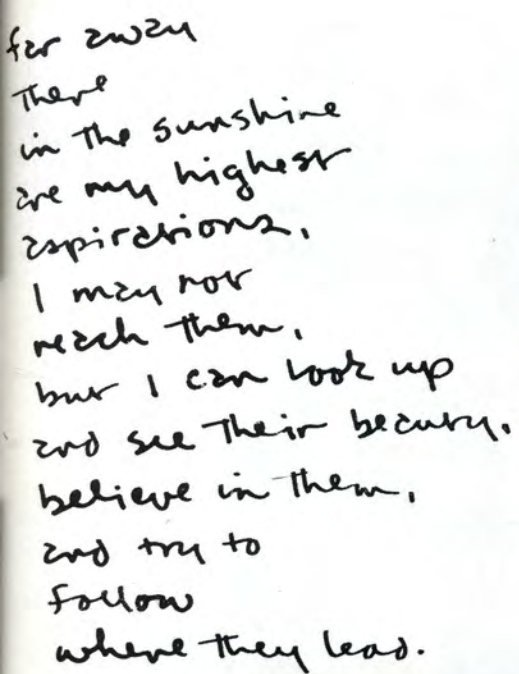 far away
There
in the sunshine
are my highest
aspirations.
I may not
reach them,
but I can look up
and see their beauty.
believe in them,
and try to
follow
where they lead.